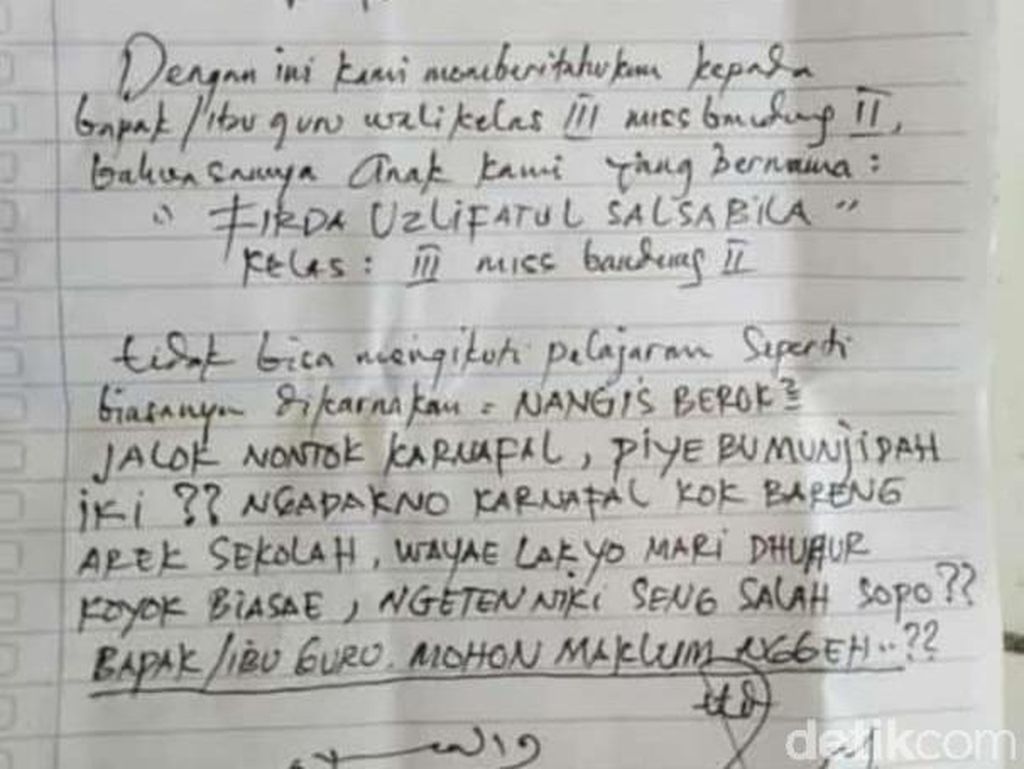 Dengan ini kami memberitahukan kepada
bapak/ibu guru wali kelas III miss bandung II,
bahwasannya anak kami yang bernama :
" FIRDA UZLIFATUL SALSABILA "
KELAS : III miss bandung II
tidak bisa mengikuti pelajaran seperti
biasanya dikarnakan = NANGIS BEROK²
JALOK NONTOK KARNAFAL, PIYE BU MUNJIDAH
iKi ?? NGADAKNO KARNAFAL KOK BARENG
AREK SEKOLAH, WAYAE LAK YO MARI DHUHUR
KOYOK BIASAE, NGETEN NIKI SENG SALAH SOPO??
BAPAK/IBU GURU. MOHON MAKLUM NGGEH..??
ttd
detikcom